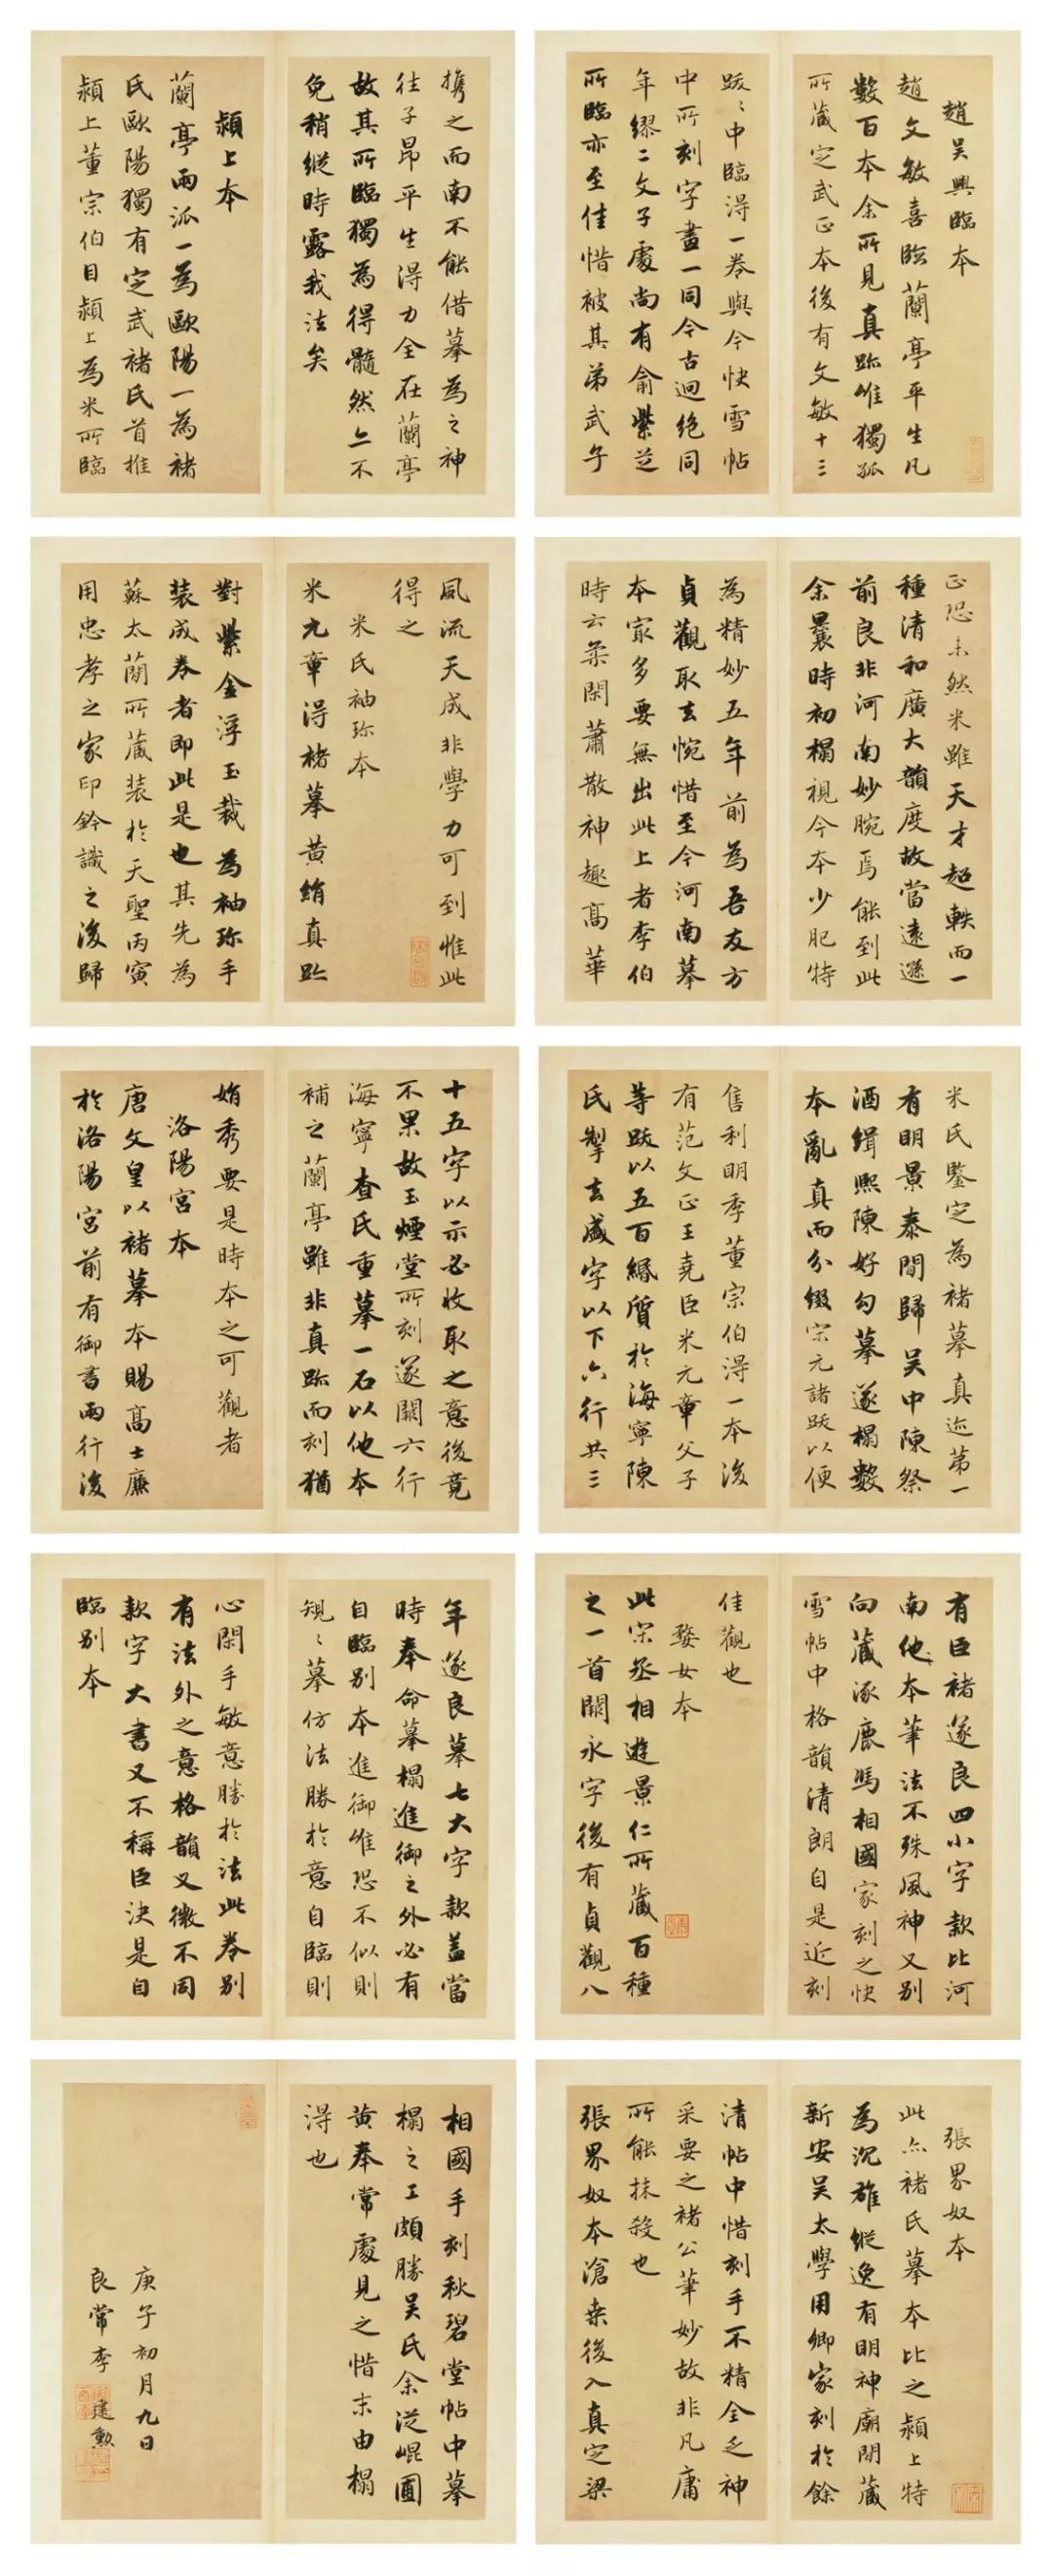 趙吳興臨本
趙文敏喜臨蘭亭平生凡
數百本余所見真跡唯獨孤
所藏定武正本後有文敏十三
跋跋中臨得一卷與今快雪帖
中所刻字畫一同今古迥絕同
年繆二文子處尚有俞紫芝
所臨亦至佳惜被其弟武子
携之而南不能借摹為之神
往子昂平生得力全在蘭亭
故其所臨獨為得髓然亦不
免稍縱時露我法矣
潁上本
蘭亭兩派一為歐陽一為褚
氏歐陽獨有定武褚氏首推
潁上董宗伯目潁上為米所臨
正恐未然米雖天才超軼而一
種清和廣大韻度故當遠遜
前良非河南妙腕焉能到此
余曩時初搨視今本少肥特
為精妙五年前為吾友方
貞觀取去惋惜至今河南摹
本寂多要無出此上者李伯
時云柔閑蕭散神趣高華
風流天成非學力可到惟此
得之
米氏袖珍本
米元章得褚摹黃絹真跡
對紫金浮玉裁為袖珍手
裝成卷者即此是也其先為
蘇太簡所藏裝於天聖丙寅
用忠孝之家印鈐識之後歸
米氏鑒定為褚摹真迹第一
有明景泰間歸吳中陳祭
酒緝熙陳好勾摹遂搨數
本亂真而分綴宋元諸跋以便
售利明季董宗伯得一本後
有范文正王堯臣米元章父子
等跋以五百緡質於海寧陳
氏掣去盛字以下六行共三
十五字以示必收取之意後竟
不果故玉煙堂所刻遂闕六行
海寧查氏重摹一石以他本
補之蘭亭雖非真跡而刻猶
娟秀要是時本之可觀者
洛陽宮本
唐文皇以褚摹本賜高士廉
於洛陽宮前有御書兩行後
有臣褚遂良四小字款比河
南他本筆法不殊風神又別
向藏涿鹿馮相國家刻之快
雪帖中格韻清朗自是近刻
佳觀也
婺女本
此宋丞相遊景仁所藏百種
之一首闕永字後有貞觀八
年遂良摹七大字款蓋當
時奉命摹搨進御之外必有
自臨別本進御唯恐不似則
規規摹仿法勝於意自臨則
心閑手敏意勝於法此卷別
有法外之意格韻又微不同
款字大書又不稱臣決是自
臨別本
張界奴本
此亦褚氏摹本比之潁上特
為沉雄縱逸有明神廟間藏
新安吳太學用卿家刻於餘
清帖中惜刻手不精全乏神
采要之褚公筆妙故非凡庸
所能抹殺也
張界奴本滄桑後入真定梁
相國手刻秋碧堂帖中摹
搨之工頗勝吳氏余從崐圃
黃奉常處見之惜未由搨
得也
庚子初月九日
良常李建勳